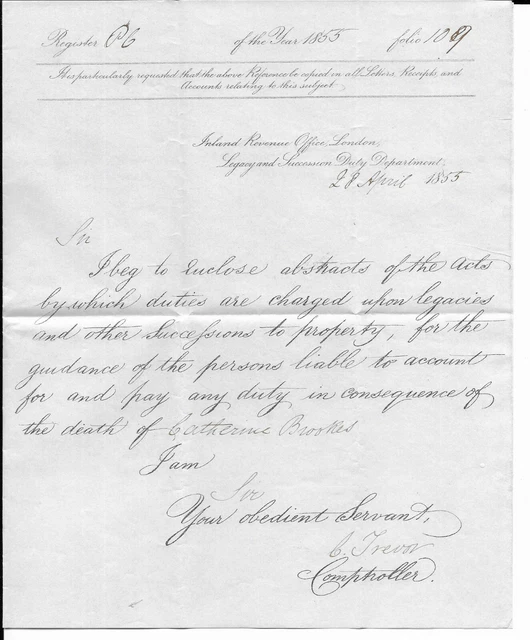 Register PC of the Year 1855 folio 1089
It is particularly requested that the above Reference be copied in all Letters, Receipts, and
Accounts relating to this subject.
Inland Revenue Office, London,
Legacy and Succession Duty Department,
28 April 1855
Sir
I beg to enclose abstracts of the Acts
by which duties are charged upon legacies
and other Successions to property, for the
guidance of the persons liable to account
for and pay any duty in consequence of
the death of Catherine Brookes
I am
Sir
Your obedient Servant,
C. Trevor
Comptroller.